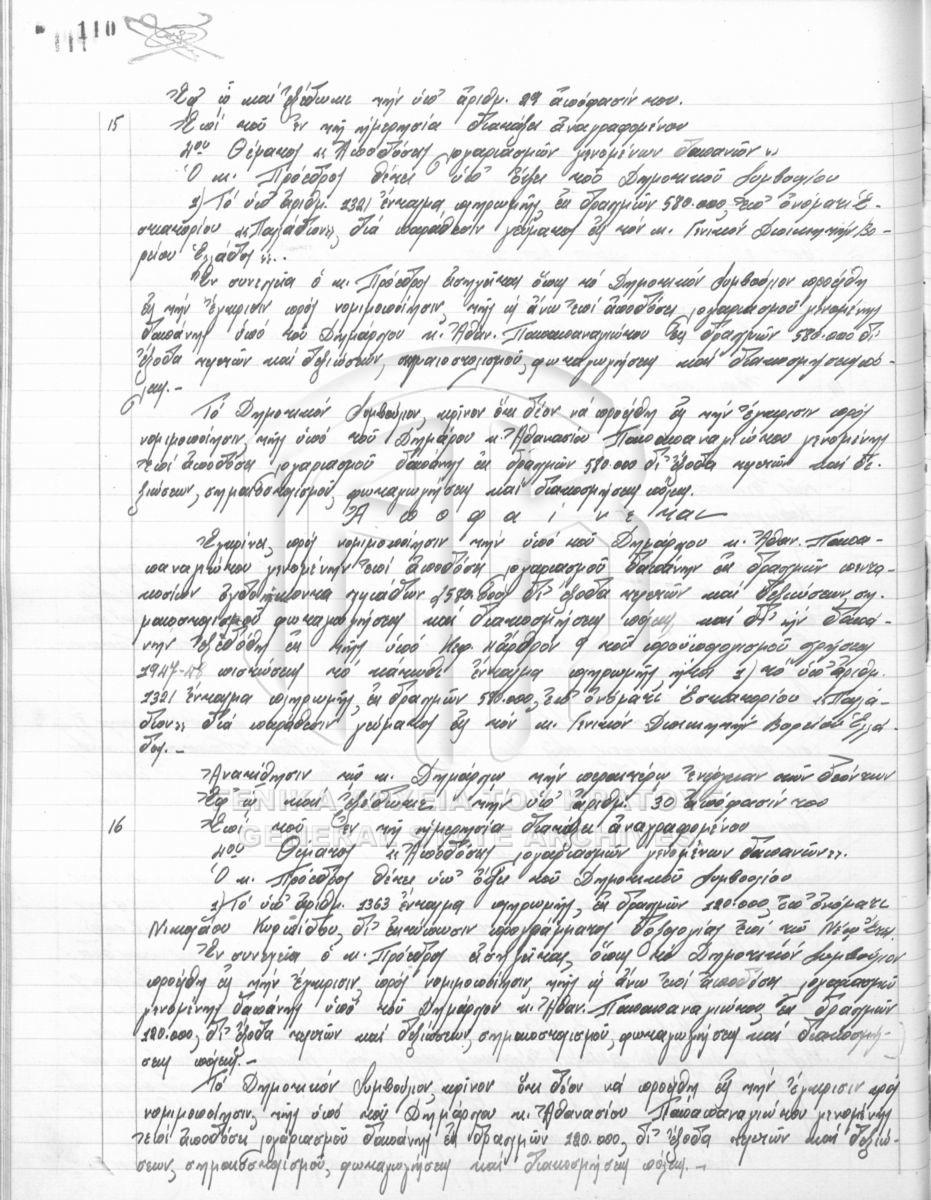 110
Ἐφ' ᾧ καί ἐξέδωκε τήν ὑπ' ἀριθμ. 29 ἀπόφασίν του.
15 Ἐπί τοῦ ἐν τῇ ἡμερησίᾳ διατάξει ἀναγραφομένου
4ου Θέματος "Ἀποδόσεις λογαριασμῶν γενομένων δαπανῶν"
Ὁ κ. Πρόεδρος θέτει ὑπ' ὄψει τοῦ Δημοτικοῦ Συμβουλίου
1) Τό ὑπ' ἀριθμ. 1321 ἔνταλμα πληρωμῆς ἐκ δραχμῶν 580.000 ἐπ' ὀνόματι Ἑ-
στιατορίου "Παλλάδιον", διά παράθεσιν γεύματος εἰς τόν κ. Γενικόν Διοικητήν Βο-
ρείου Ἑλλάδος".
Ἐν συνεχείᾳ ὁ κ. Πρόεδρος εἰσηγεῖται ὅπως τό Δημοτικόν Συμβούλιον προέλθῃ
εἰς τήν ἔγκρισιν πρός νομιμοποίησιν, τῆς ὡς ἄνω ἐπί ἀποδόσει λογαριασμοῦ γενομένης
δαπάνης ὑπό τοῦ Δημάρχου κ. Ἀθαν. Παπαπαναγιώτου ἐκ δραχμῶν 580.000 δι'
ἔξοδα ἑορτῶν καί δεξιώσεων, σημαιοστολισμοῦ, φωταγωγήσεως καί διακοσμήσεως πό-
λεως.-
Τό Δημοτικόν Συμβούλιον, κρίνον ὅτι δέον νά προέλθῃ εἰς τήν ἔγκρισιν πρός
νομιμοποίησιν, τῆς ὑπό τοῦ Δημάρχου κ. Ἀθανασίου Παπαπαναγιώτου γενομένης
ἐπί ἀποδόσει λογαριασμοῦ δαπάνης ἐκ δραχμῶν 580.000 δι' ἔξοδα ἑορτῶν καί δε-
ξιώσεων, σημαιοστολισμοῦ, φωταγωγήσεως καί διακοσμήσεως πόλεως.
Ἀ π ο φ α ί ν ε τ α ι
Ἐγκρίνει, πρός νομιμοποίησιν τήν ὑπό τοῦ Δημάρχου κ. Ἀθαν. Παπα-
παναγιώτου γενομένην ἐπί ἀποδόσει λογαριασμοῦ δαπάνην ἐκ δραχμῶν πεντα-
κοσίων ὀγδοήκοντα χιλιάδων (580.000) δι' ἔξοδα ἑορτῶν καί δεξιώσεων, ση-
μαιοστολισμοῦ φωταγωγήσεως καί διακοσμήσεως πόλεως, καί δι' ἥν δαπά-
νην ἐξεδόθη ἐκ τῆς ὑπό Κεφ. ἄρθρον 9 τοῦ προϋπολογισμοῦ χρήσεως
1947-48 πιστώσεως τό κάτωθι ἔνταλμα πληρωμῆς ἤτοι 1) τό ὑπ' ἀριθμ.
1321 ἔνταλμα πληρωμῆς, ἐκ δραχμῶν 580.000, ἐπ' ὀνόματι Ἑστιατορίου "Παλλά-
διον" διά παράθεσιν γεύματος εἰς τόν κ. Γενικόν Διοικητήν Βορείου Ἑλλά-
δος.-
Ἀνατίθησιν τῷ κ. Δημάρχῳ τήν περαιτέρω ἐνέργειαν τῶν δεόντων
Ἐφ' ᾧ καί ἐξέδωκε τήν ὑπ' ἀριθμ. 30 ἀπόφασίν του
ΓΕΝΙΚΑ ΑΡΧΕΙΑ ΤΟΥ ΚΡΑΤΟΥΣ
GENERAL STATE ARCHIVES
16 Ἐπί τοῦ ἐν τῇ ἡμερησίᾳ διατάξει ἀναγραφομένου
4ου Θέματος "Ἀποδόσεις λογαριασμῶν γενομένων δαπανῶν".
Ὁ κ. Πρόεδρος θέτει ὑπ' ὄψει τοῦ Δημοτικοῦ Συμβουλίου
1) Τό ὑπ' ἀριθμ. 1363 ἔνταλμα πληρωμῆς, ἐκ δραχμῶν 120.000, ἐπ' ὀνόματι
Νικολάου Κυριακίδου, δι' ἐκτύπωσιν προγράμματος δοξολογίας ἐπί τῷ Νέῳ Ἔτει.
Ἐν συνεχείᾳ ὁ κ. Πρόεδρος εἰσηγεῖται, ὅπως τό Δημοτικόν Συμβούλιον
προέλθῃ εἰς τήν ἔγκρισιν, πρός νομιμοποίησιν, τῆς ὡς ἄνω ἐπί ἀποδόσει λογαριασμοῦ
γενομένης δαπάνης ὑπό τοῦ Δημάρχου κ. Ἀθαν. Παπαπαναγιώτου, ἐκ δραχμῶν
120.000, δι' ἔξοδα ἑορτῶν καί δεξιώσεων, σημαιοστολισμοῦ, φωταγωγήσεως καί διακοσμή-
σεως πόλεως.-
Τό Δημοτικόν Συμβούλιον, κρίνον ὅτι δέον νά προέλθῃ εἰς τήν ἔγκρισιν πρός
νομιμοποίησιν, τῆς ὑπό τοῦ Δημάρχου κ. Ἀθανασίου Παπαπαναγιώτου γενομένης
ἐπί ἀποδόσει λογαριασμοῦ δαπάνης ἐκ δραχμῶν 120.000, δι' ἔξοδα ἑορτῶν καί δεξιώ-
σεων, σημαιοστολισμοῦ, φωταγωγήσεως καί διακοσμήσεως πόλεως.-